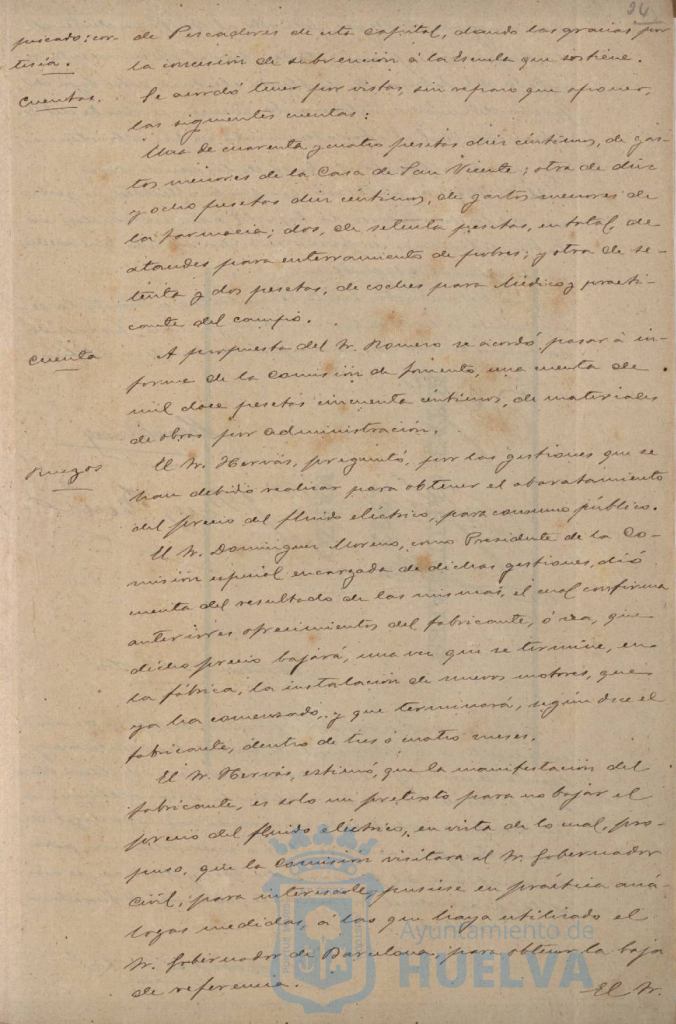 24
puscado: cor-
tesía.
de Pescadores de esta Capital, dando las gracias por
la concesión de subvención á la Escuela que sostiene.
Cuentas.
Se acordó tener por vistas, sin reparo que oponer,
las siguientes cuentas:
Una de cuarenta y cuatro pesetas diez céntimos, de gas-
tos menores de la Casa de San Vicente; otra de diez
y ocho pesetas diez céntimos, de gastos menores de
la farmacia; dos, de setenta pesetas, en total, de
ataudes para enterramiento de pobres; y otra de se-
tenta y dos pesetas, de coches para Médico y practi-
cante del campo.
Cuenta
A propuesta del Sr. Romero se acordó, pasar á in-
forme de la Comisión de fomento, una cuenta de
mil doce pesetas cincuenta céntimos, de materiales
de obras por administración.
Ruegos
El Sr. Hervás, preguntó, por las gestiones que se
han debido realizar para obtener el abaratamiento
del precio del fluido eléctrico, para consumo público.
El Sr. Dominguez Moreno, como Presidente de la Co-
misión especial encargada de dichas gestiones, dió
cuenta del resultado de las mismas, el cual confirma
anteriores ofrecimientos del fabricante, ó sea, que
dicho precio bajará, una vez que se termine, en
la fábrica, la instalación de nuevos motores, que
ya ha comenzado, y que terminará, según dice el
fabricante, dentro de tres ó cuatro meses.
El Sr. Hervás, estimó, que la manifestación del
fabricante, es solo un pretexto para no bajar el
precio del fluido eléctrico, en vista de lo cual, pro-
puso, que la Comisión visitara al Sr. Gobernador
Civil, para interesarle, pusiese en práctica aná-
logas medidas, á las que haya utilizado el
Sr. Gobernador de Barcelona, para obtener la baja
de referencia.
El Sr.
Ayuntamiento de
HUELVA